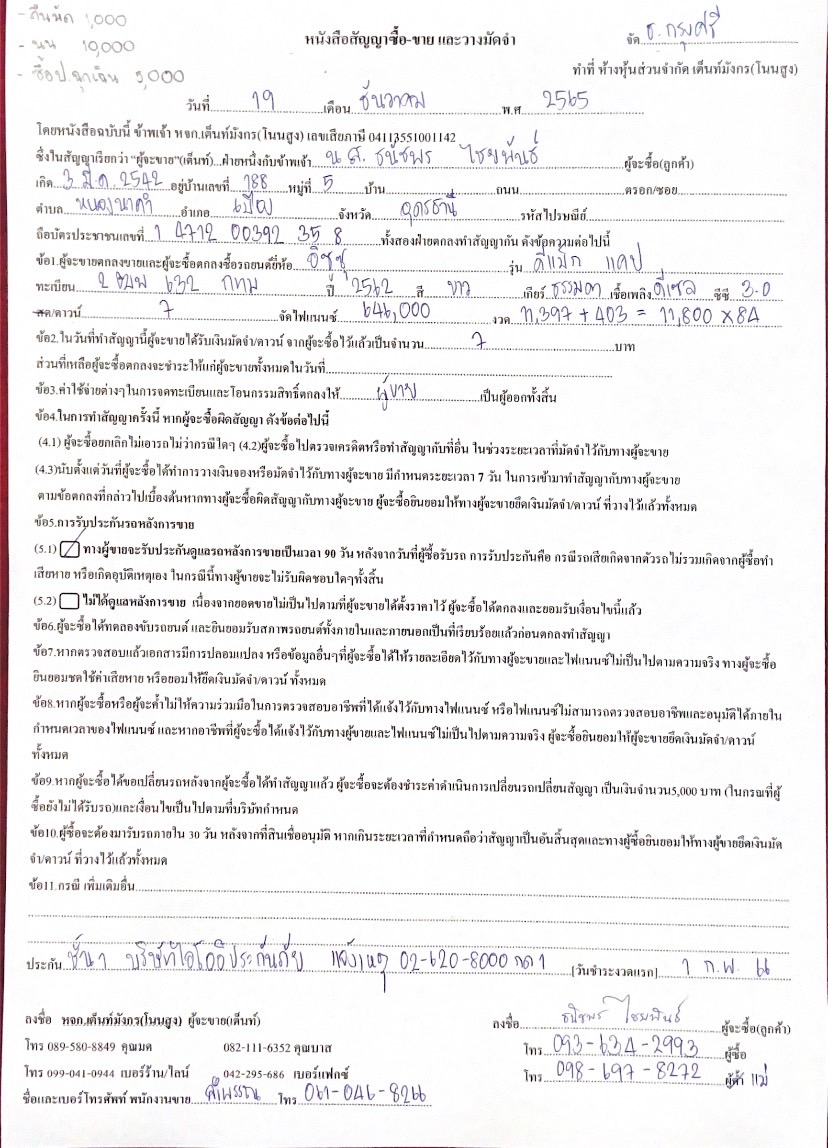 - คืนนัด 1,000
- นน 19,000
- ซื้อป.ฉุกเฉิน 5,000
หนังสือสัญญาซื้อ-ขาย และวางมัดจำ
จัด ธ.กรุงศรี
ทำที่ ห้างหุ้นส่วนจำกัด เต็นท์มังกร(โนนสูง)
วันที่ 19 เดือน ธันวาคม พ.ศ 2565
โดยหนังสือฉบับนี้ ข้าพเจ้า หจก.เต็นท์มังกร(โนนสูง) เลขเสียภาษี 04113551001142
ซึ่งในสัญญาเรียกว่า "ผู้จะขาย"(เต็นท์)...ฝ่ายหนึ่งกับข้าพเจ้า น.ส. ธนัชพร ไชยพันธ์ ผู้จะซื้อ(ลูกค้า)
เกิด 3 มี.ค. 2542 อยู่บ้านเลขที่ 188 หมู่ที่ 5 บ้าน ถนน ตรอก/ซอย
ตำบล หนองนาคำ อำเภอ เมือง จังหวัด อุดรธานี รหัสไปรษณีย์
ถือบัตรประชาชนเลขที่ 1 4712 00392 35 8 ทั้งสองฝ่ายตกลงทำสัญญากัน ดังข้อความต่อไปนี้
ข้อ1.ผู้จะขายตกลงขายและผู้จะซื้อตกลงซื้อรถยนต์ยี่ห้อ อีซูซุ รุ่น ดีแม็ก แคป
ทะเบียน 2ฒพ 632 กทม ปี 2562 สี ขาว เกียร์ ธรรมดา เชื้อเพลิง ดีเซล ซีซี 3.0
สด/ดาวน์ 7 จัดไฟแนนซ์ 646,000 งวด 11,397 + 403 = 11,800 x 84
ข้อ2.ในวันที่ทำสัญญานี้ผู้จะขายได้รับเงินมัดจำ/ดาวน์ จากผู้จะซื้อไว้แล้วเป็นจำนวน 7 บาท
ส่วนที่เหลือผู้จะซื้อตกลงจะชำระให้แก่ผู้จะขายทั้งหมดในวันที่
ข้อ3.ค่าใช้จ่ายต่างๆในการจดทะเบียนและโอนกรรมสิทธิ์ตกลงให้ ผู้ขาย เป็นผู้ออกทั้งสิ้น
ข้อ4.ในการทำสัญญาครั้งนี้ หากผู้จะซื้อผิดสัญญา ดังข้อต่อไปนี้
(4.1) ผู้จะซื้อยกเลิกไม่เอารถไม่ว่ากรณีใดๆ (4.2)ผู้จะซื้อไปตรวจเครดิตหรือทำสัญญากับที่อื่น ในช่วงระยะเวลาที่มัดจำไว้กับทางผู้จะขาย
(4.3)นับตั้งแต่วันที่ผู้จะซื้อได้ทำการวางเงินจองหรือมัดจำไว้กับทางผู้จะขาย มีกำหนดระยะเวลา 7 วัน ในการเข้ามาทำสัญญากับทางผู้จะขาย
ตามข้อตกลงที่กล่าวไปเบื้องต้นหากทางผู้จะซื้อผิดสัญญากับทางผู้จะขาย ผู้จะซื้อยินยอมให้ทางผู้จะขายยึดเงินมัดจำ/ดาวน์ ที่วางไว้แล้วทั้งหมด
ข้อ5.การรับประกันรถหลังการขาย
(5.1) ทางผู้ขายจะรับประกันดูแลรถหลังการขายเป็นเวลา 90 วัน หลังจากวันที่ผู้ซื้อรับรถ การรับประกันคือ กรณีรถเสียเกิดจากตัวรถไม่รวมเกิดจากผู้ซื้อทำ
เสียหาย หรือเกิดอุบัติเหตุเอง ในกรณีนี้ทางผู้ขายจะไม่รับผิดชอบใดๆทั้งสิ้น
(5.2) ไม่ได้ดูแลหลังการขาย เนื่องจากยอดขายไม่เป็นไปตามที่ผู้จะขายได้ตั้งราคาไว้ ผู้จะซื้อได้ตกลงและยอมรับเงื่อนไขนี้แล้ว
ข้อ6.ผู้จะซื้อได้ทดลองขับรถยนต์ และยินยอมรับสภาพรถยนต์ทั้งภายในและภายนอกเป็นที่เรียบร้อยแล้วก่อนตกลงทำสัญญา
ข้อ7.หากตรวจสอบแล้วเอกสารมีการปลอมแปลง หรือข้อมูลอื่นๆที่ผู้จะซื้อได้ให้รายละเอียดไว้กับทางผู้จะขายและไฟแนนซ์ไม่เป็นไปตามความจริง ทางผู้จะซื้อ
ยินยอมชดใช้ค่าเสียหาย หรือยอมให้ยึดเงินมัดจำ/ดาวน์ ทั้งหมด
ข้อ8.หากผู้จะซื้อหรือผู้จะค้ำไม่ให้ความร่วมมือในการตรวจสอบอาชีพที่ได้แจ้งไว้กับทางไฟแนนซ์ หรือไฟแนนซ์ไม่สามารถตรวจสอบอาชีพและอนุมัติได้ภายใน
กำหนดเวลาของไฟแนนซ์ และหากอาชีพที่ผู้จะซื้อได้แจ้งไว้กับทางผู้ขายและไฟแนนซ์ไม่เป็นไปตามความจริง ผู้จะซื้อยินยอมให้ผู้จะขายยึดเงินมัดจำ/ดาวน์
ทั้งหมด
ข้อ9.หากผู้จะซื้อได้ขอเปลี่ยนรถหลังจากผู้จะซื้อได้ทำสัญญาแล้ว ผู้จะซื้อจะต้องชำระค่าดำเนินการเปลี่ยนรถเปลี่ยนสัญญา เป็นเงินจำนวน5,000 บาท (ในกรณที่ผู้
ซื้อยังไม่ได้รับรถ)และเงื่อนไขเป็นไปตามที่บริษัทกำหนด
ข้อ10.ผู้ซื้อจะต้องมารับรถภายใน 30 วัน หลังจากที่สินเชื่ออนุมัติ หากเกินระยะเวลาที่กำหนดถือว่าสัญญาเป็นอันสิ้นสุดและทางผู้ซื้อยินยอมให้ทางผู้ขายยึดเงินมัด
จำ/ดาวน์ ที่วางไว้แล้วทั้งหมด
ข้อ11.กรณี เพิ่มเติมอื่น
ประกัน ชั้น 1 บริษัทไอโออิประกันภัย แจ้งเหตุ 02-620-8000 กด 1 [วันชำระงวดแรก] 1 ก.พ. 66
ลงชื่อ หจก.เต็นท์มังกร(โนนสูง) ผู้จะขาย(เต็นท์) ลงชื่อ ธนัชพร ไชยพันธ์ ผู้จะซื้อ(ลูกค้า)
โทร 089-580-8849 คุณมด 082-111-6352 คุณบาส โทร 093-634-2993 ผู้ซื้อ
โทร 099-041-0944 เบอร์ร้าน/ไลน์ 042-295-686 เบอร์แฟกซ์ โทร 098-697-8272 ผู้ค้ำ แม่
ชื่อและเบอร์โทรศัพท์ พนักงานขาย โทร 061-046-8266